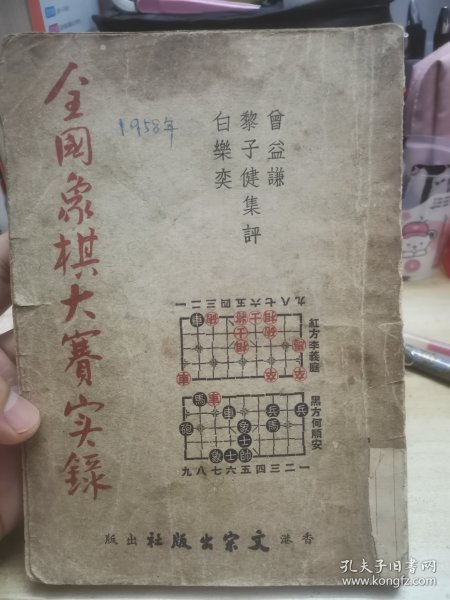 全國象棋大賽实錄
1958年
曾益謙
黎子健集評
白樂奕
九八七六五四三二一
紅方李義庭
黑方何順安
九八七六五四三二一
香港文宗出版社出版
孔夫子旧书网
www.kongfz.com